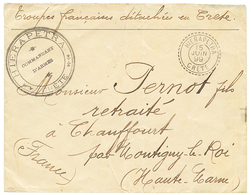 Troupes françaises détachées en Crète
HIERAPETRA
COMMANDANT
D'ARMES
CRÈTE
HIERAPETRA
15
JUIN
99
CRETE
Monsieur Pernot fils
retraité
à Chauffourt
par Montigny-le-Roi
(France) (Haute-Marne)